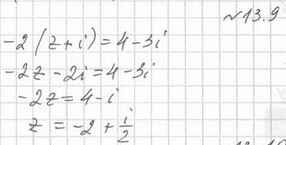 №13.9
-2(z+i)=4-3i
-2z-2i=4-3i
-2z=4-i
z=-2+i/2